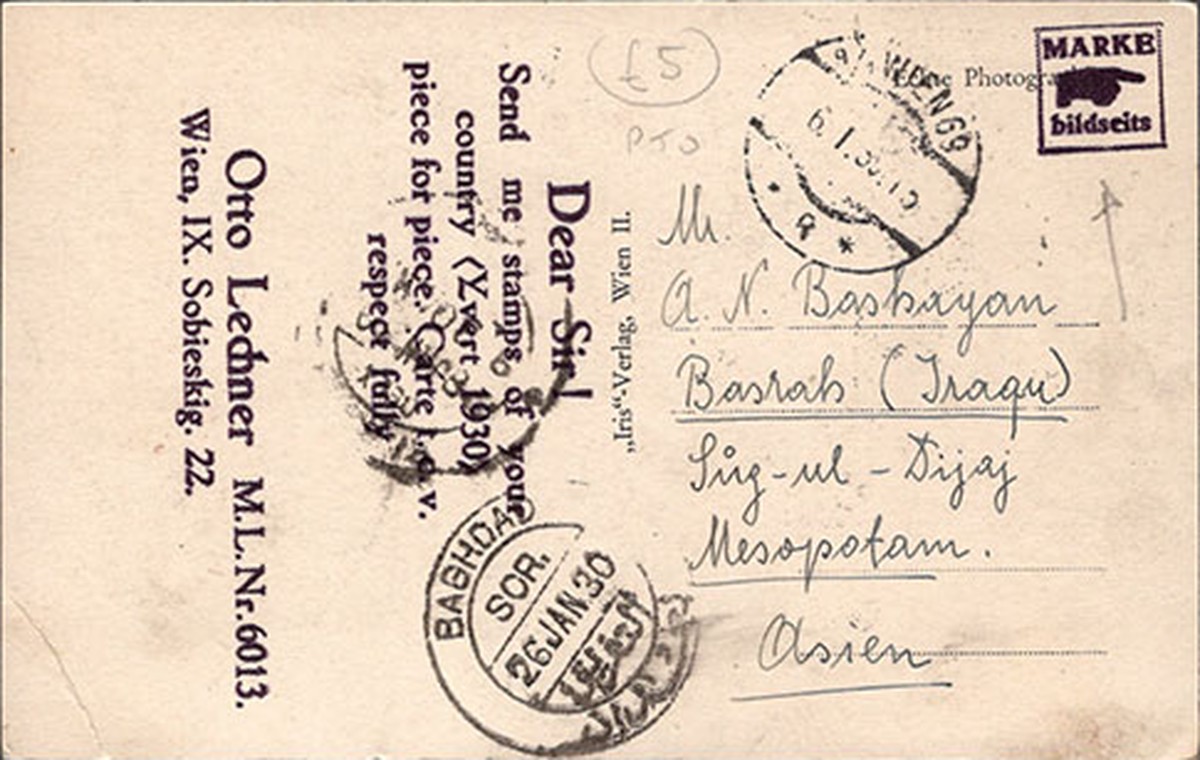 £5
PTO
MARKE
bildseits
WIEN 69
6.I.30
BAGHDAD
SOR.
26 JAN 30
„Iris“-Verlag, Wien II.
Dear Sir!
Send me stamps of your
country (Yvert 1930)
piece for piece. Carte t. o. v.
respect fully
Otto Lechner M.L.Nr.6013.
Wien, IX. Sobieskig. 22.
Mr.
A. N. Bashayan
Basrah (Iraqu)
Sûg-ul-Dijaj
Mesopotam.
Asien